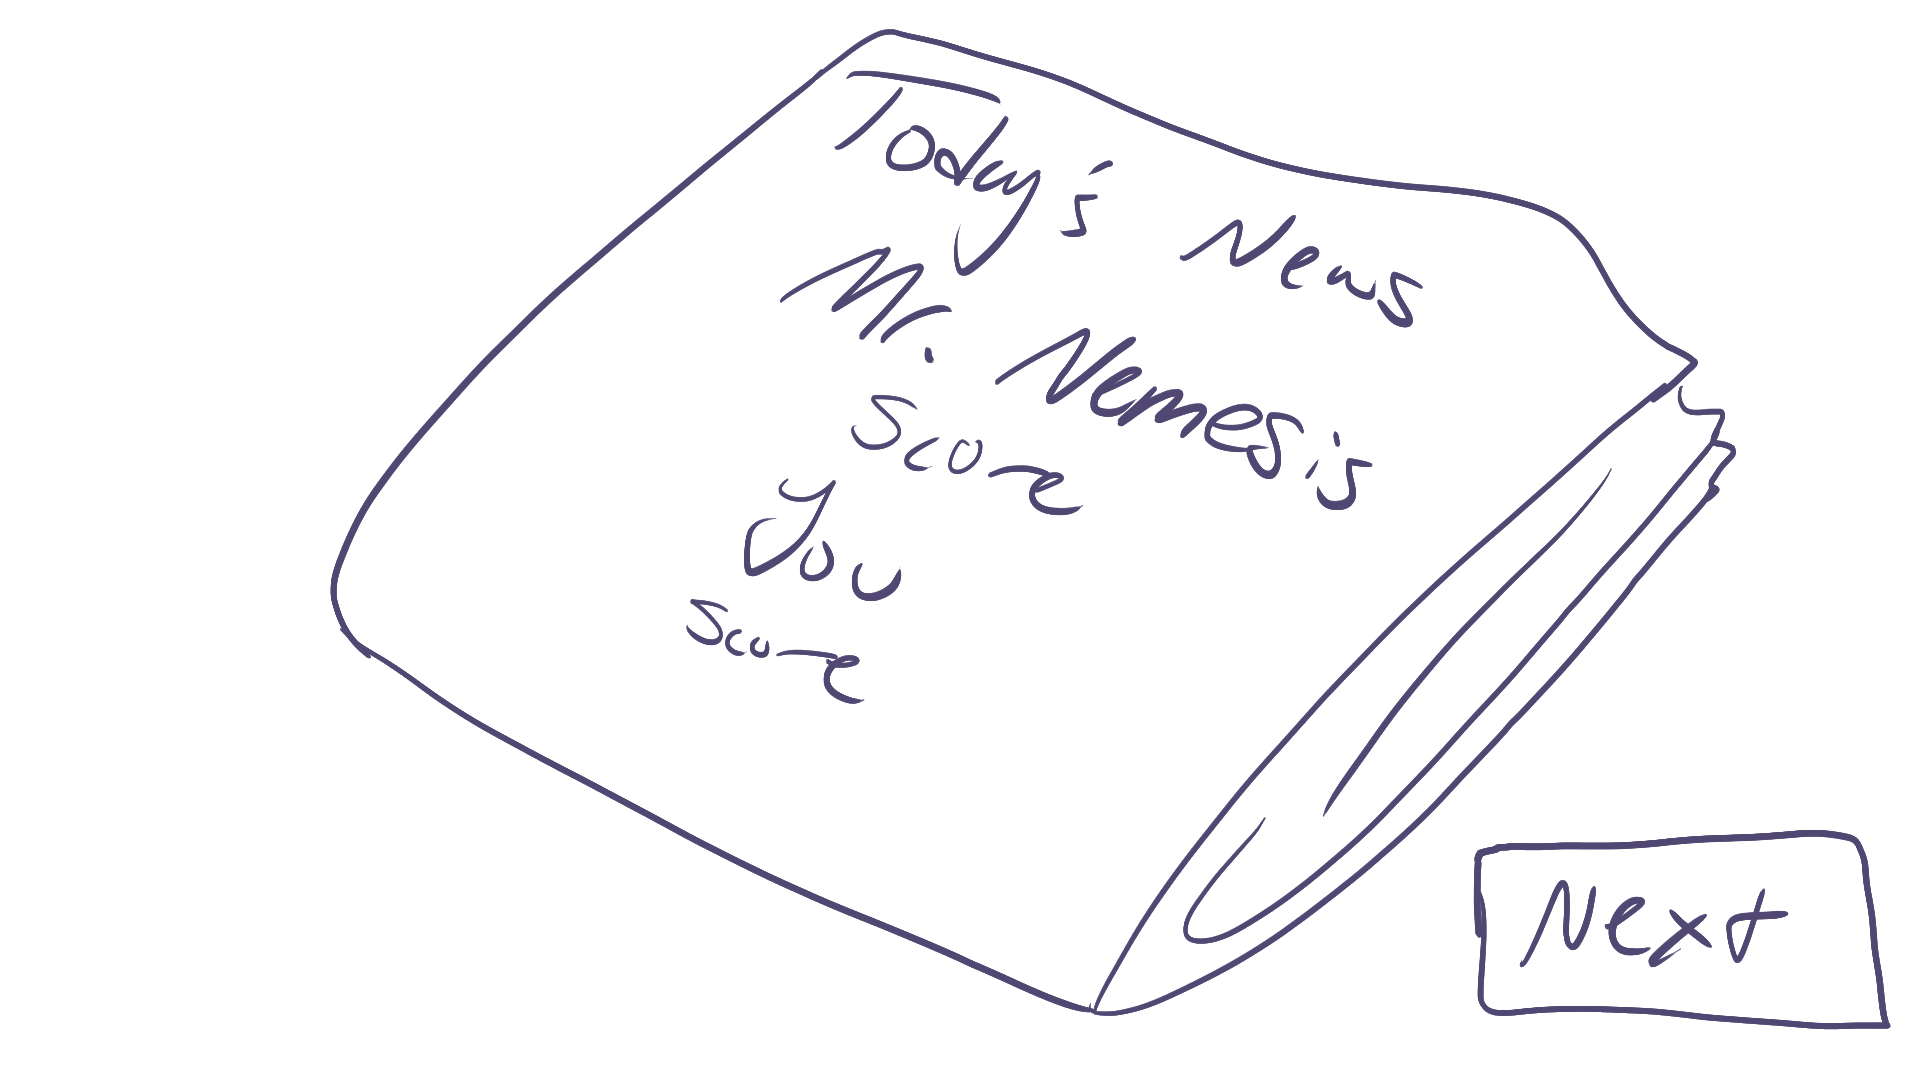 Today's News
Mr. Nemesis
Score
You
Score
Next